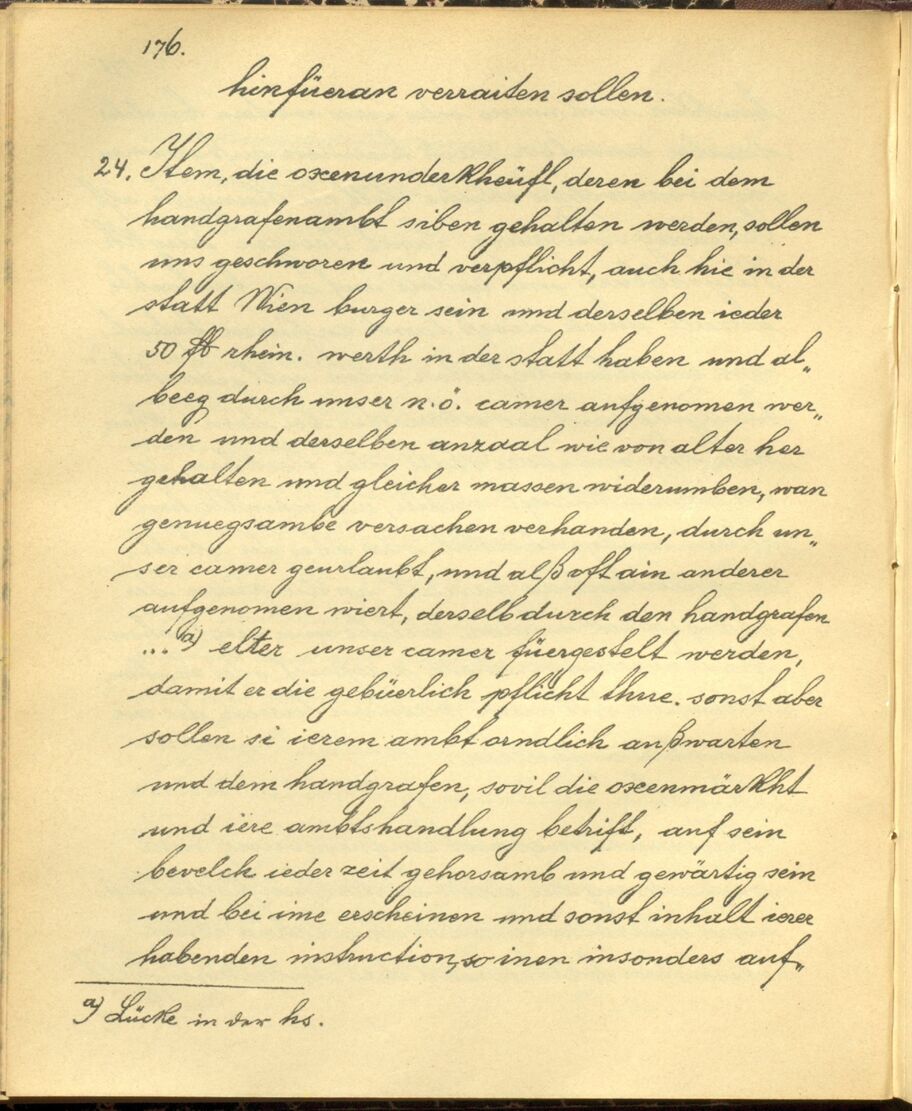 176.
hinfüeran verraiten sollen.
24. Item, die oxenunderkheüfl, deren bei dem
handgrafenambt siben gehalten werden, sollen
uns geschworen und verpflicht, auch hie in der
statt Wien burger sein und derselben ieder
50 ℔ rhein. werth in der statt haben und al„
beeg durch unser n. ö. camer aufgenomen wer„
den und derselben anzaal wie von alter her
gehalten und gleicher massen widerumben, wan
genuegsambe versachen verhanden, durch un„
ser camer geurlaubt, und alß oft ain anderer
aufgenomen wiert, derselb durch den handgrafen
...a) elter unser camer füergestelt werden,
damit er die gebüerlich pflicht thue. sonst aber
sollen si ierem ambt orndlich außwarten
und dem handgrafen, sovil die oxenmärkht
und iere ambtshandlung betrift, auf sein
bevelch ieder zeit gehorsamb und gewärtig sein
und bei ime erscheinen und sonst inhalt ierer
habenden instruction, so inen insonders auf„
a) Lücke in der hs.